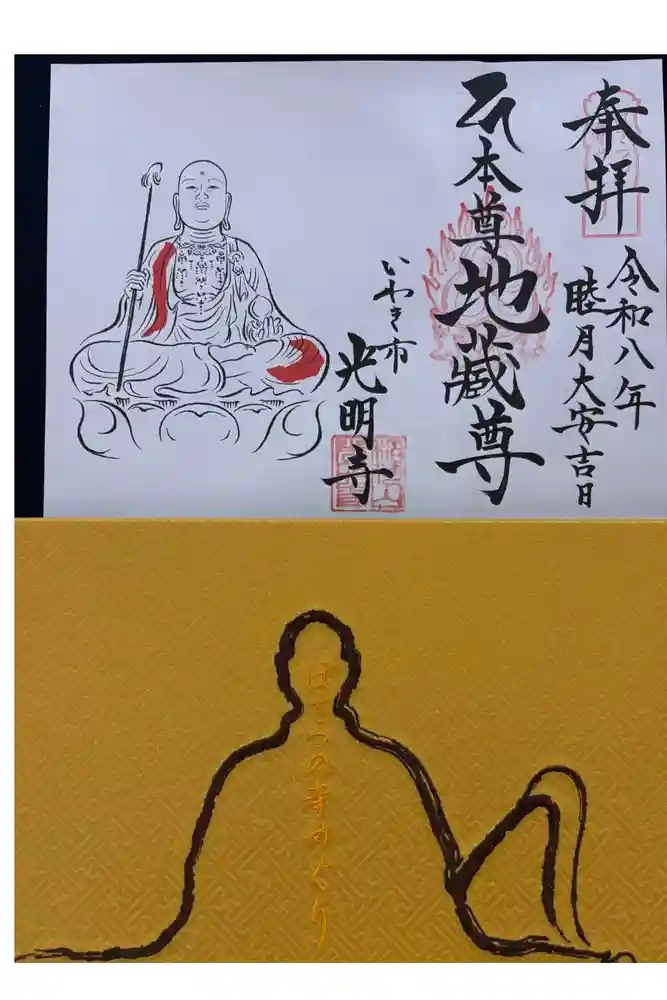 奉拝
令和八年
睦月大安吉日
本尊地蔵尊
いわき市
光明寺
ほとけの寺めぐり